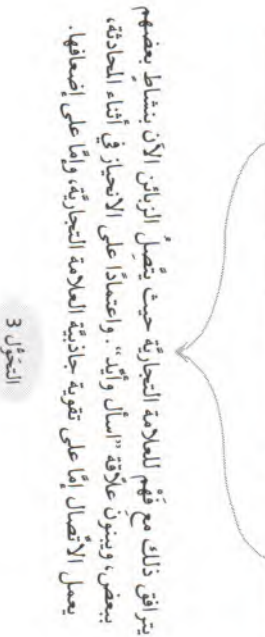 يترافق ذلك مع فَهْمٍ للعلامة التجاريّة حيث يتَّصِلُ الزبائن الآن بنشاطٍ بعضهم
ببعض، ويبنونَ علاقة "اسأل وأيِّد". واعتمادًا على الانحياز في أثناء المحادثة،
يعمل الاتّصال إمّا على تقوية جاذبيّة العلامة التجاريّة، وإمّا على إضعافها.
التحوُّل 3